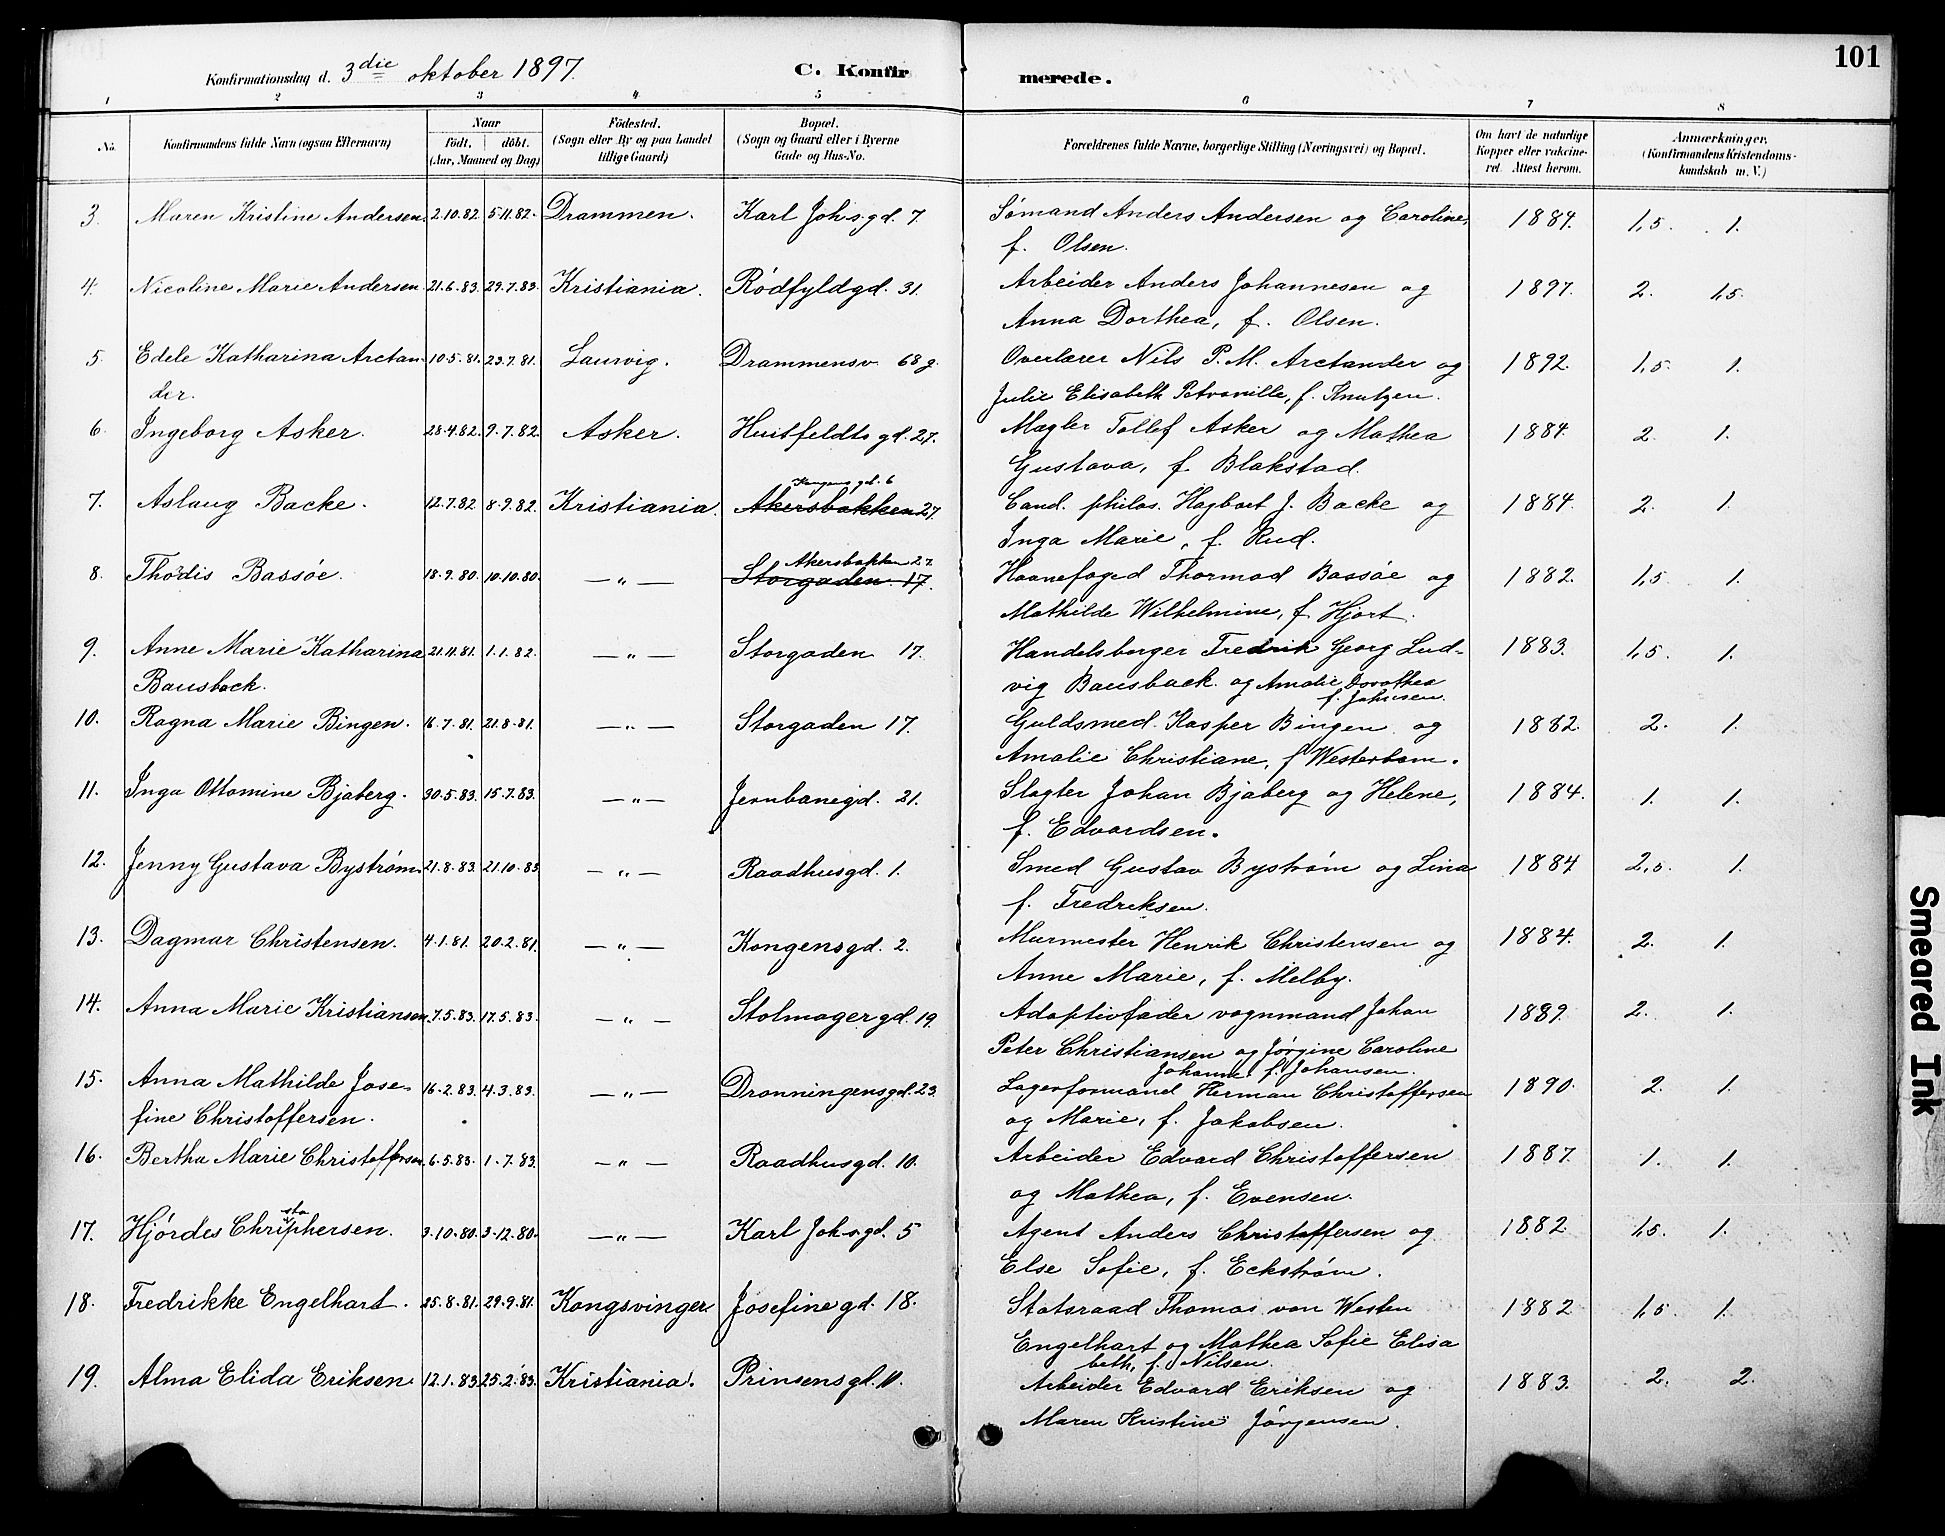 101
Konfirmationsdag d. 3die oktober 1897. C. Konfirmerede.
1 2 3 4 5 6 7 8
No. Konfirmandens fulde Navn (ogsaa Efternavn) Naar Födt, döbt. (Aar, Maaned og Dag) Födested. (Sogn eller By og paa Landet tillige Gaard) Bopæl. (Sogn og Gaard eller i Byerne Gade og Hus-No. Forældrenes fulde Navne, borgerlige Stilling (Næringsvei) og Bopæl. Om havt de naturlige Kopper eller vakcineret. Attest herom. Anmærkninger, (Konfirmandens Kristendomskundskab m. V.)
3. Maren Kristine Andersen. 2.10.82. 5.11.82. Drammen. Karl Johs.gd. 7. Sømand Anders Andersen og Caroline, 1884. 1,5. 1.
f. Olsen.
4. Nicoline Marie Andersen. 21.6.83. 29.7.83. Kristiania. Rödfyldgd. 31. Arbeider Anders Johannesen og 1897. 2. 1,5.
Anna Dorthea, f. Olsen.
5. Edele Katharina Arctan- 10.5.81. 23.7.81. Laurvig. Drammensv. 68 g. Overlærer Nils P. M. Arctander og 1892. 1,5. 1.
der. Julie Elisabeth Petronille, f. Knutzen.
6. Ingeborg Asker. 28.4.82. 9.7.82. Asker. Huitfeldts gd. 27. Mægler Tollef Asker og Mathea 1884. 2. 1.
Gustava, f. Blakstad.
gd. 6
7. Aslaug Backe. 12.7.82 8.9.82. Kristiania. Akersbakken 27. Cand. philos. Hagbart J. Backe og 1884. 2. 1.
Inga Marie, f. Rud.
Akersbakken 27.
8. Thordis Bassöe. 18.9.80. 10.10.80. —„— Storgaden. 17. Havnefoged Thormod Bassöe og 1882. 1,5. 1.
Mathilde Wilhelmine, f. Hjort.
9. Anne Marie Katharina 21.11.81. 1.1.82. —„— Storgaden 17. Handelsborger Fredrik Georg Lud- 1883. 1,5. 1.
Bausback. vig Bausback. og Amalie Dorothea
f. Johnsen.
10. Ragna Marie Bingen. 16.7.81. 21.8.81. —„— Storgaden 17. Guldsmed Kasper Bingen og 1882. 2. 1.
Amalie Christiane, f. Westerbom.
11. Inga Ottomine Bjaberg. 30.5.83. 15.7.83. —„— Jernbanegd. 21. Slagter Johan Bjaberg og Helene, 1884. 1. 1.
f. Edvardsen.
12. Jenny Gustava Byström. 21.8.83. 21.10.83 —„— Raadhusgd. 1. Smed Gustav Byström og Lina 1884 2,5. 1.
f. Fredriksen.
13. Dagmar Christensen. 4.1.81. 20.2.81. —„— Kongensgd. 2. Murmester Henrik Christensen og 1884. 2. 1.
Anne Marie, f. Melby.
14. Anna Marie Kristiansen. 7.5.83. 17.5.83. —„— Stolmagergd. 19. Adoptivfader vognmand Johan 1889. 2. 1.
Peter Christiansen og Jørgine Caroline
Johanne f. Johansen.
15. Anna Mathilde Jose- 16.2.83. 4.3.83. —„— Dronningensgd. 23. Lagerformand Herman Christoffersen 1890. 2. 1.
fine Christoffersen. og Marie, f. Jakobsen.
16. Bertha Marie Christoffersen 6.5.83. 1.7.83. —„— Raadhusgd. 10. Arbeider Edvard Christoffersen 1887. 1. 1.
og Mathea, f. Evensen.
sto
17. Hjördes Chriphersen. 3.10.80. 3.12.80. —„— Karl Johs.gd. 5 Agent Anders Christoffersen og 1882. 1,5. 1.
Else Sofie, f. Eckström.
18. Fredrikke Engelhart. 25.8.81. 29.9.81. Kongsvinger. Josefinegd. 18. Statsraad Thomas von Westen 1882 1,5. 1.
Engelhart og Mathea Sofie Elisa
beth, f. Nilsen.
19. Alma Elida Eriksen. 12.1.83. 25.2.83. Kristiania. Prinsensgd. 11. Arbeider Edvard Eriksen og 1883. 2. 2.
Maren Kristine Jørgensen.
Smeared Ink